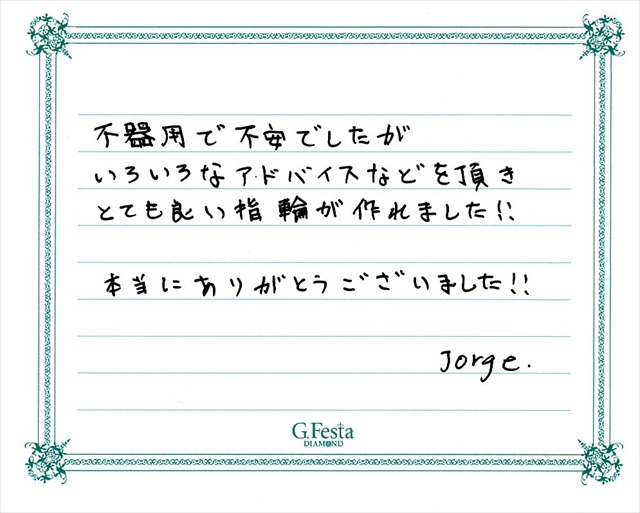 不器用で不安でしたが
いろいろなアドバイスなどを頂き
とても良い指輪が作れました!!
本当にありがとうございました!!
Jorge.
G.Festa
DIAMOND